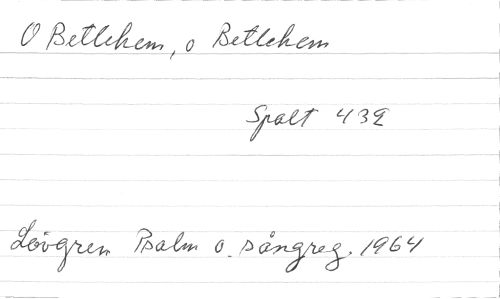 O Betlehem, o Betlehem
Spalt 432
Lövgren Psalm o. sångreg. 1964